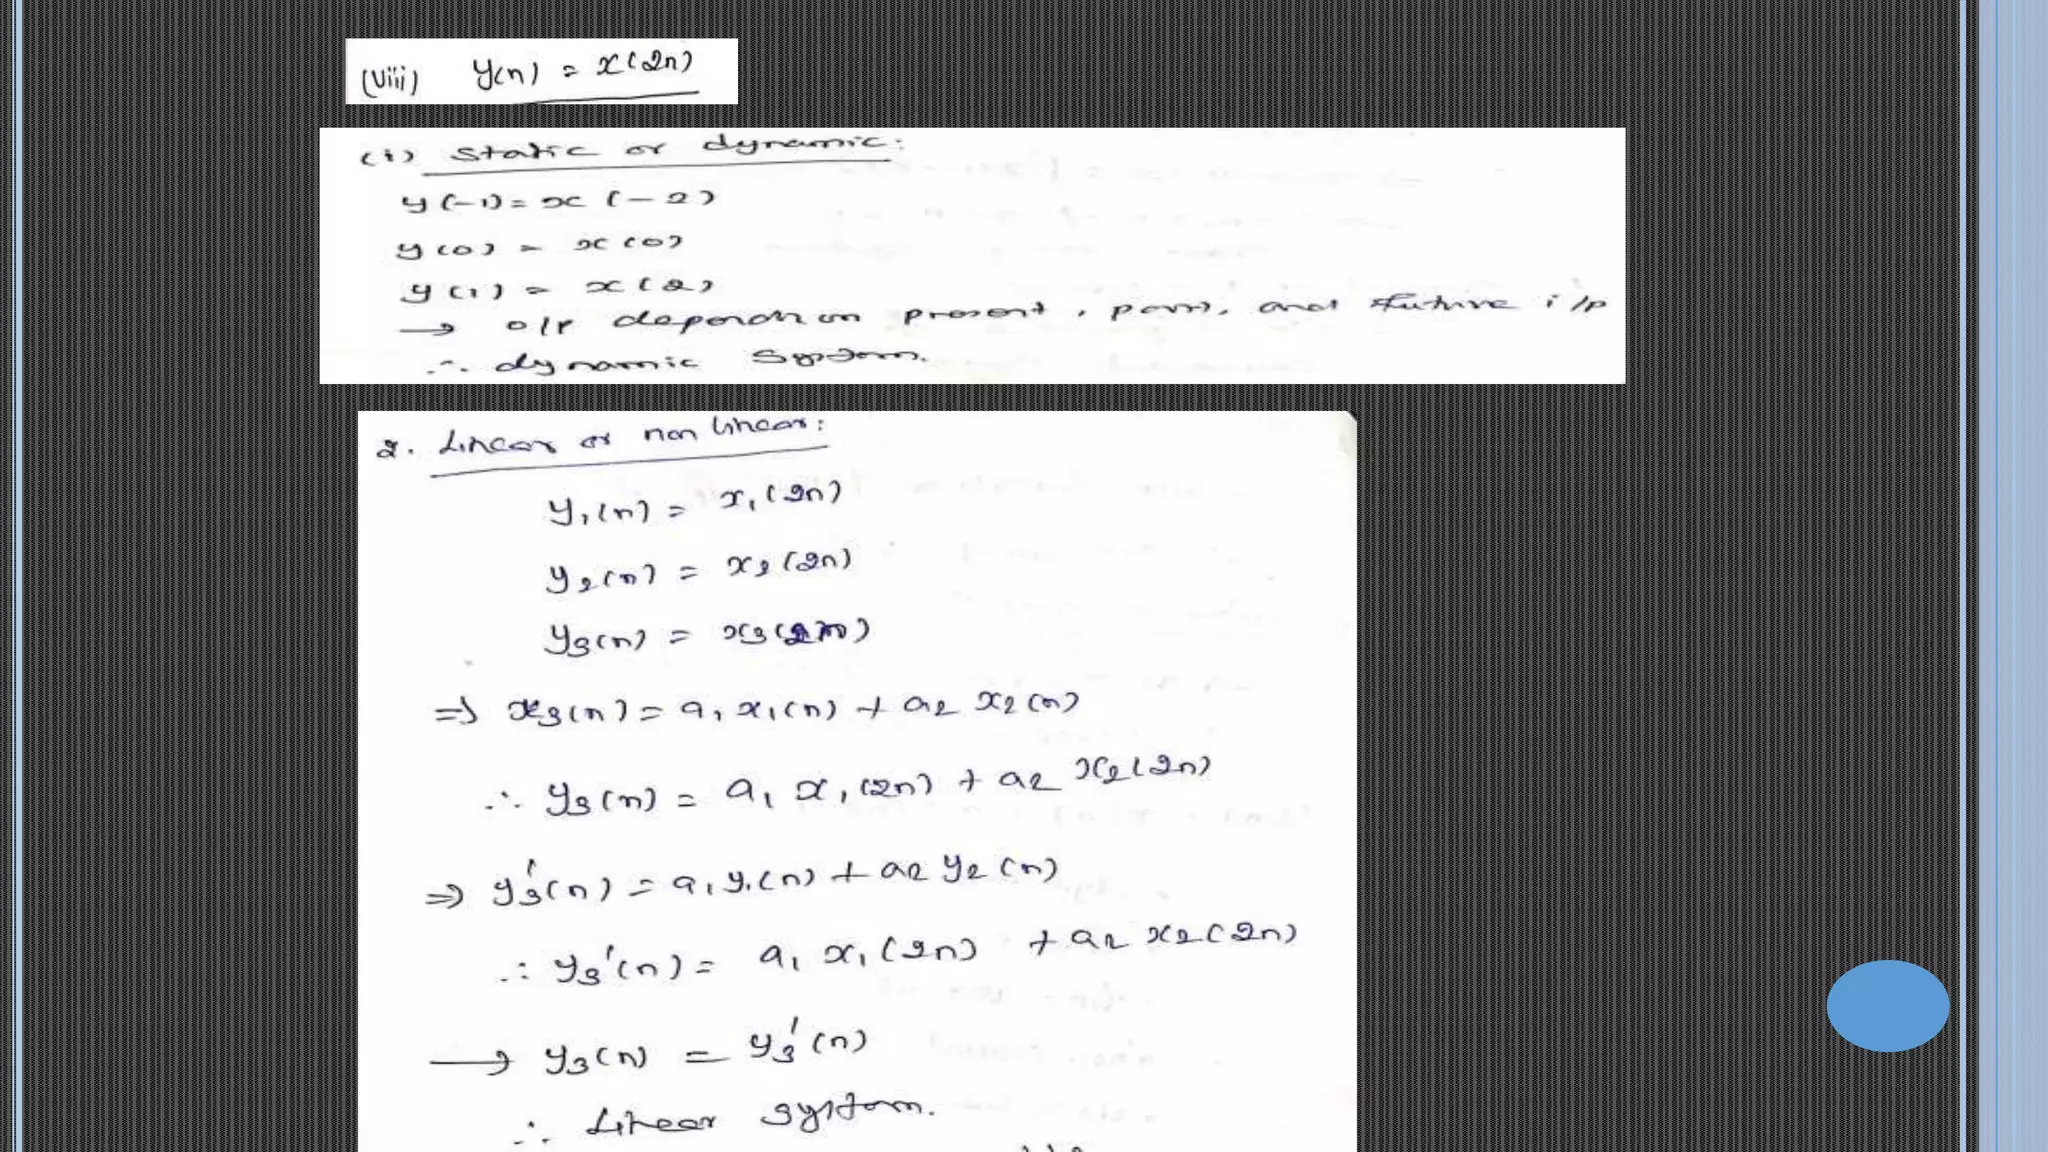 (viii) y(n) = x(2n)
(i) Static or dynamic:
y(-1) = x(-2)
y(0) = x(0)
y(1) = x(2)
→ o/p depends on present, past, and future i/p
∴ dynamic system.
2. Linear or non linear:
y₁(n) = x₁(2n)
y₂(n) = x₂(2n)
y₃(n) = x₃(2n)
⇒ x₃(n) = a₁ x₁(n) + a₂ x₂(n)
∴ y₃(n) = a₁ x₁(2n) + a₂ x₂(2n)
⇒ y₃'(n) = a₁ y₁(n) + a₂ y₂(n)
∴ y₃'(n) = a₁ x₁(2n) + a₂ x₂(2n)
→ y₃(n) = y₃'(n)
∴ Linear system.